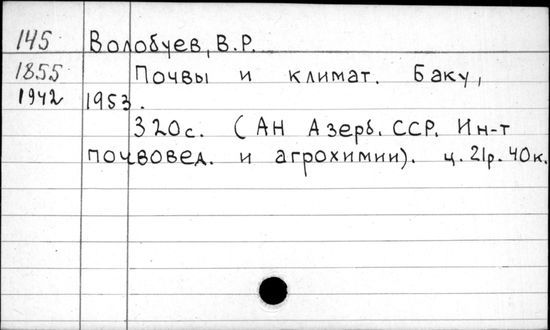 145 Волобуев, В.Р.
1855 Почвы и климат. Баку,
1942 1953.
320с. (АН Азерб. ССР. Ин-т
почвовед. и агрохимии). ц. 21р. 40к.